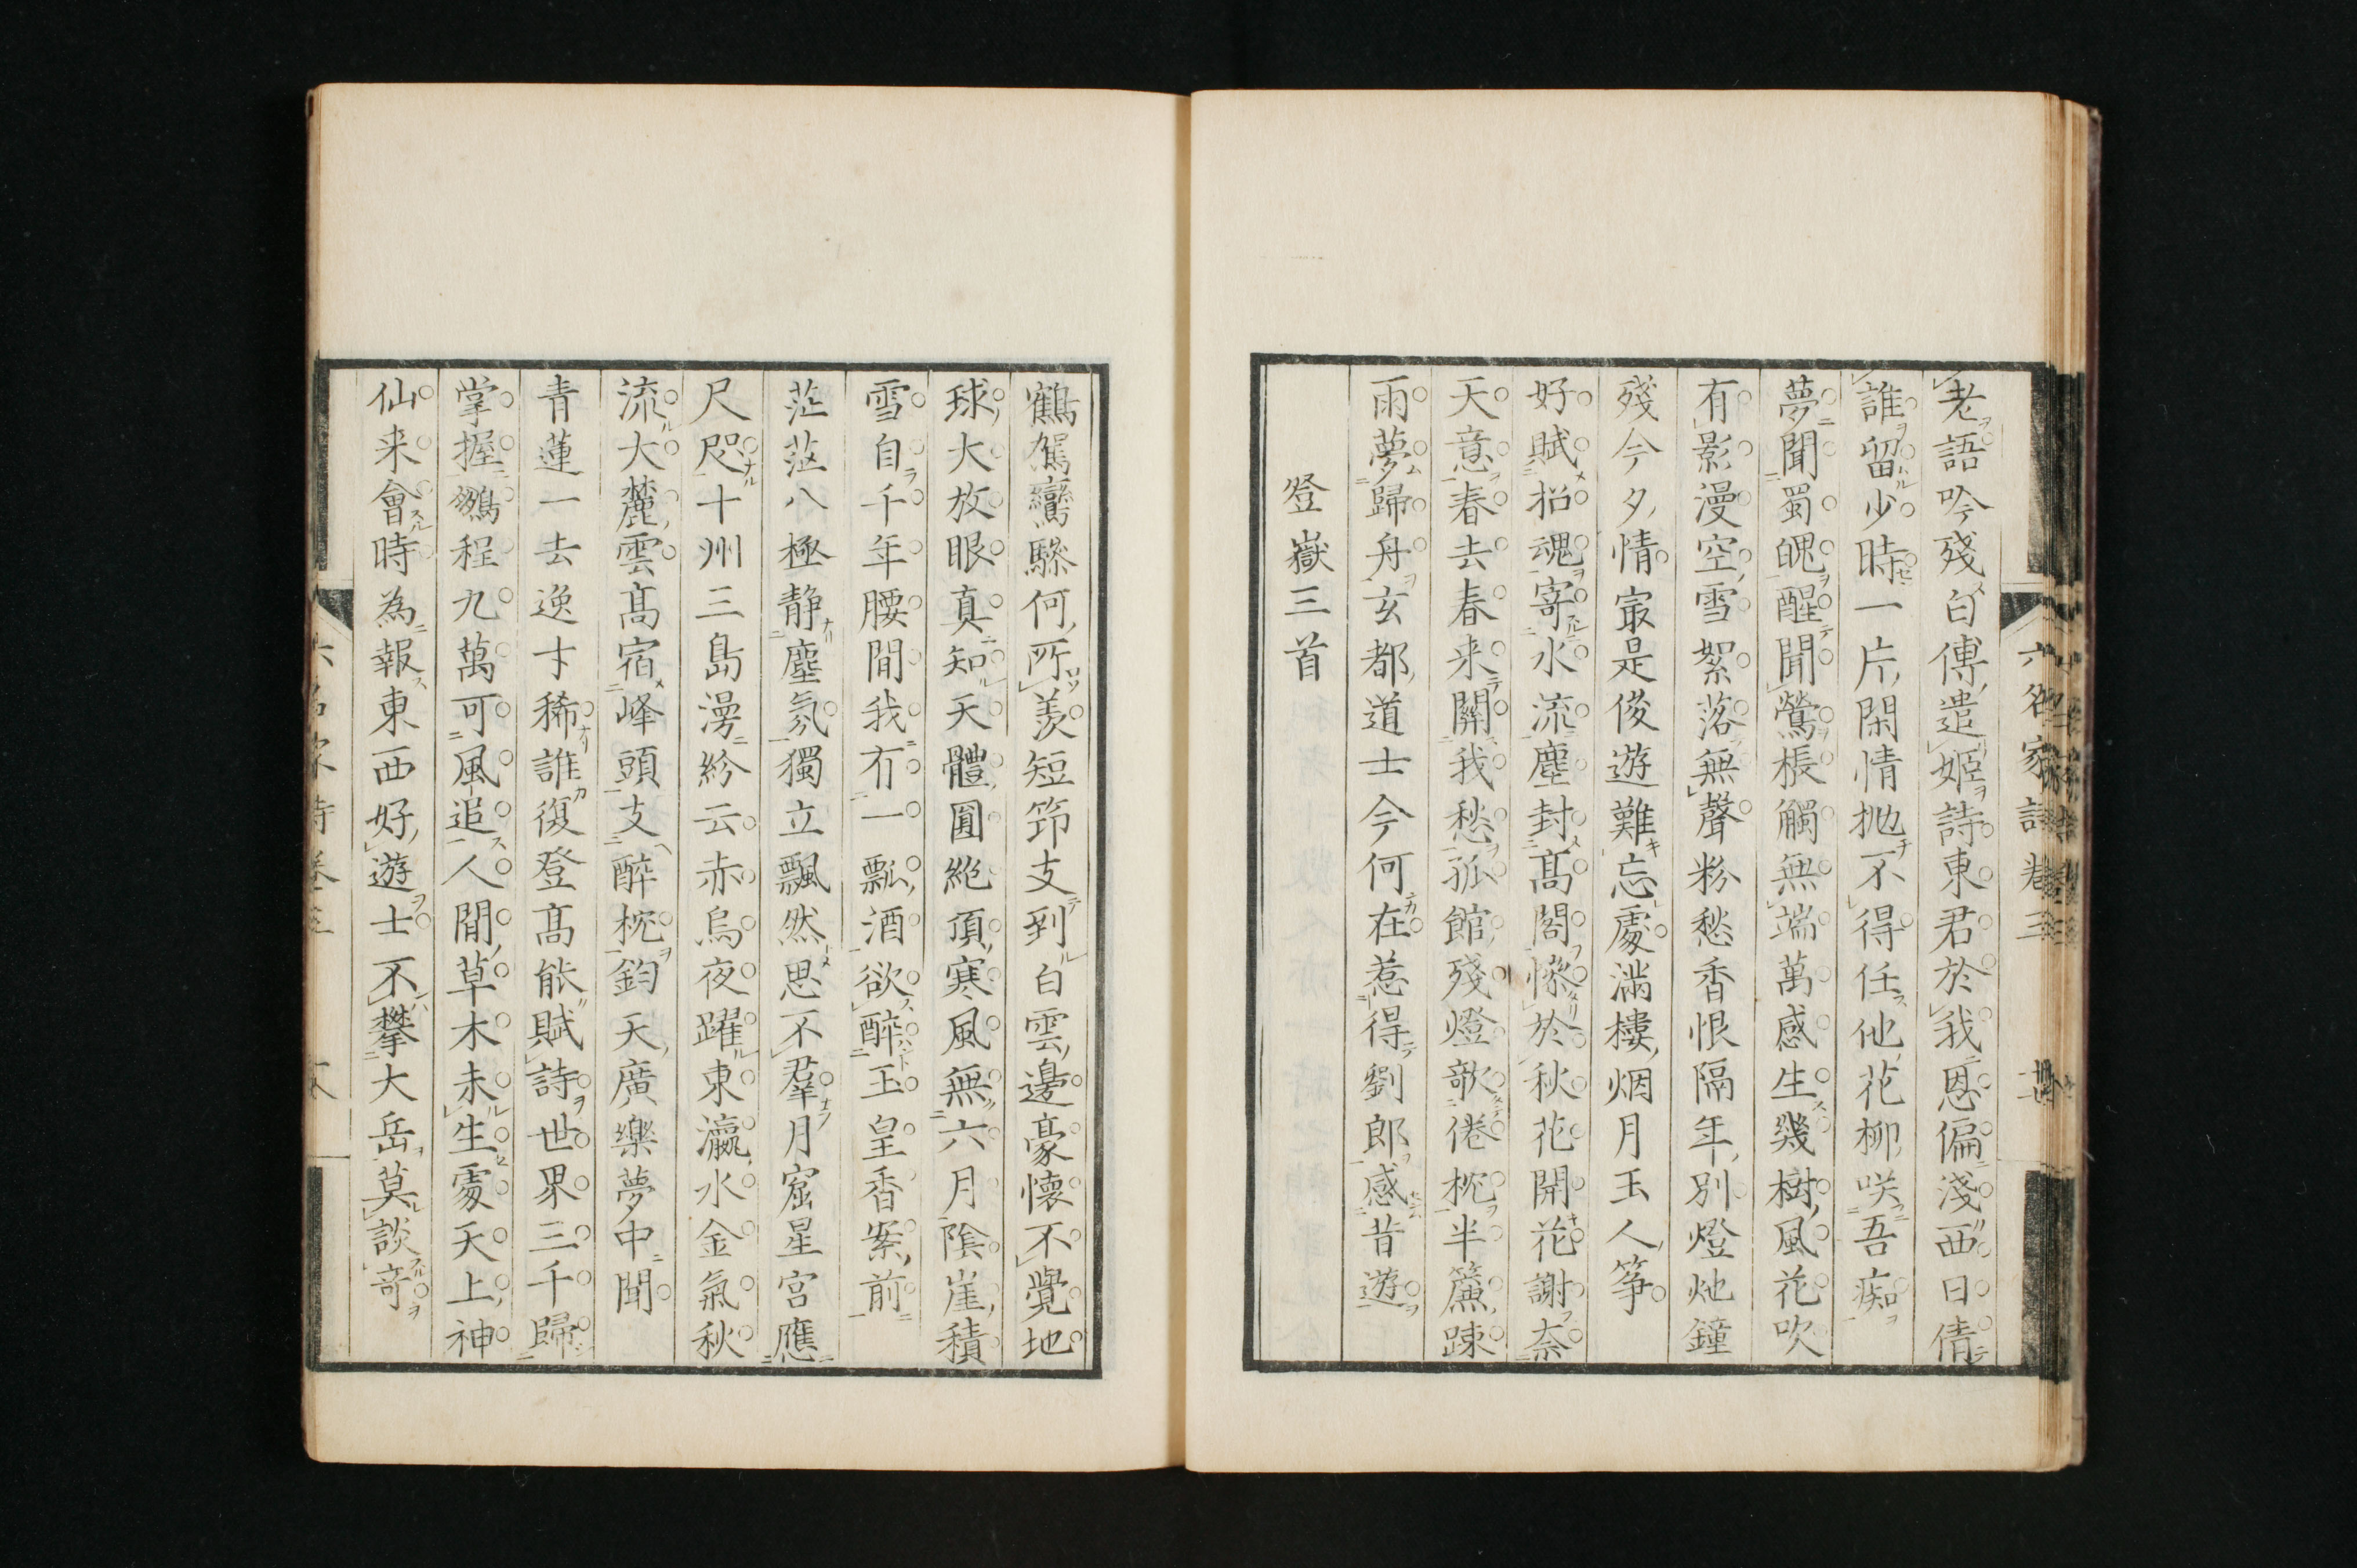 六名家詩卷三
老語吟殘白傳遣姬詩東君於我恩偏淺西日倩
誰留少時一片閑情抛不得任他花柳咲吾痴
夢聞蜀魄醒聞鶯棖觸無端萬感生幾樹風花吹
有影漫空雪絮落無聲粉愁香恨隔年別燈灺鐘
殘今夕情最是俊遊難忘處滿樓烟月玉人箏
好賦招魂寄水流塵封髙閣慘於秋花開花謝奈
天意春去春来關我愁孤館殘燈欹倦枕半簾踈
雨夢歸舟玄都道士今何在惹得劉郎感昔遊
登嶽三首
鶴駕鸞驂何所羨短筇支到白雲邊豪懷不覺地
球大放眼真知天體圓絶頂寒風無六月陰崖積
雪自千年腰間我有一瓢酒欲醉玉皇香案前
茫茫八極静塵氛獨立飄然思不羣月窟星宮應
尺咫十州三島漫紛云赤烏夜躍東瀛水金氣秋
流大麓雲髙宿峰頭支醉枕鈞天廣樂夢中聞
青蓮一去逸才稀誰復登髙能賦詩世界三千歸
掌握鵬程九萬可風追人間草木未生處天上神
仙来會時為報東西好遊士不攀大岳莫談奇
六名家詩卷三